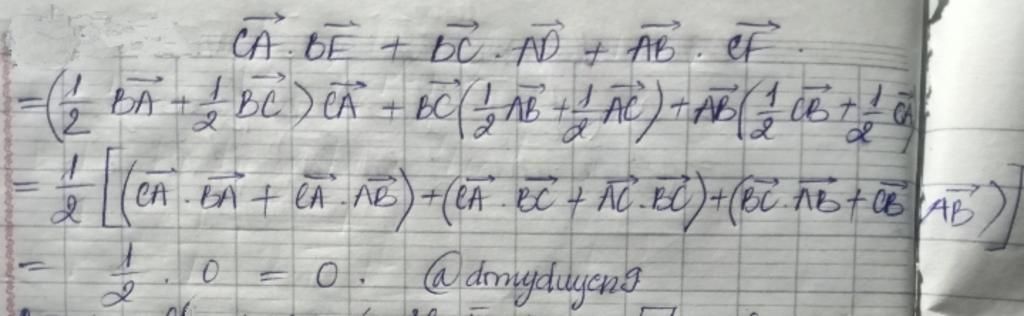 $\overrightarrow{CA} \cdot \overrightarrow{BE} + \overrightarrow{BC} \cdot \overrightarrow{AD} + \overrightarrow{AB} \cdot \overrightarrow{CF}.$
$= \left(\frac{1}{2} \overrightarrow{BA} + \frac{1}{2} \overrightarrow{BC}\right) \overrightarrow{CA} + \overrightarrow{BC} \left(\frac{1}{2} \overrightarrow{AB} + \frac{1}{2} \overrightarrow{AC}\right) + \overrightarrow{AB} \left(\frac{1}{2} \overrightarrow{CB} + \frac{1}{2} \overrightarrow{CA}\right)$
$= \frac{1}{2} \left[\left(\overrightarrow{CA} \cdot \overrightarrow{BA} + \overrightarrow{CA} \cdot \overrightarrow{AB}\right) + \left(\overrightarrow{CA} \cdot \overrightarrow{BC} + \overrightarrow{AC} \cdot \overrightarrow{BC}\right) + \left(\overrightarrow{BC} \cdot \overrightarrow{AB} + \overrightarrow{CB} \cdot \overrightarrow{AB}\right)\right]$
$= \frac{1}{2} \cdot 0 = 0.$ @dtmyduyen9